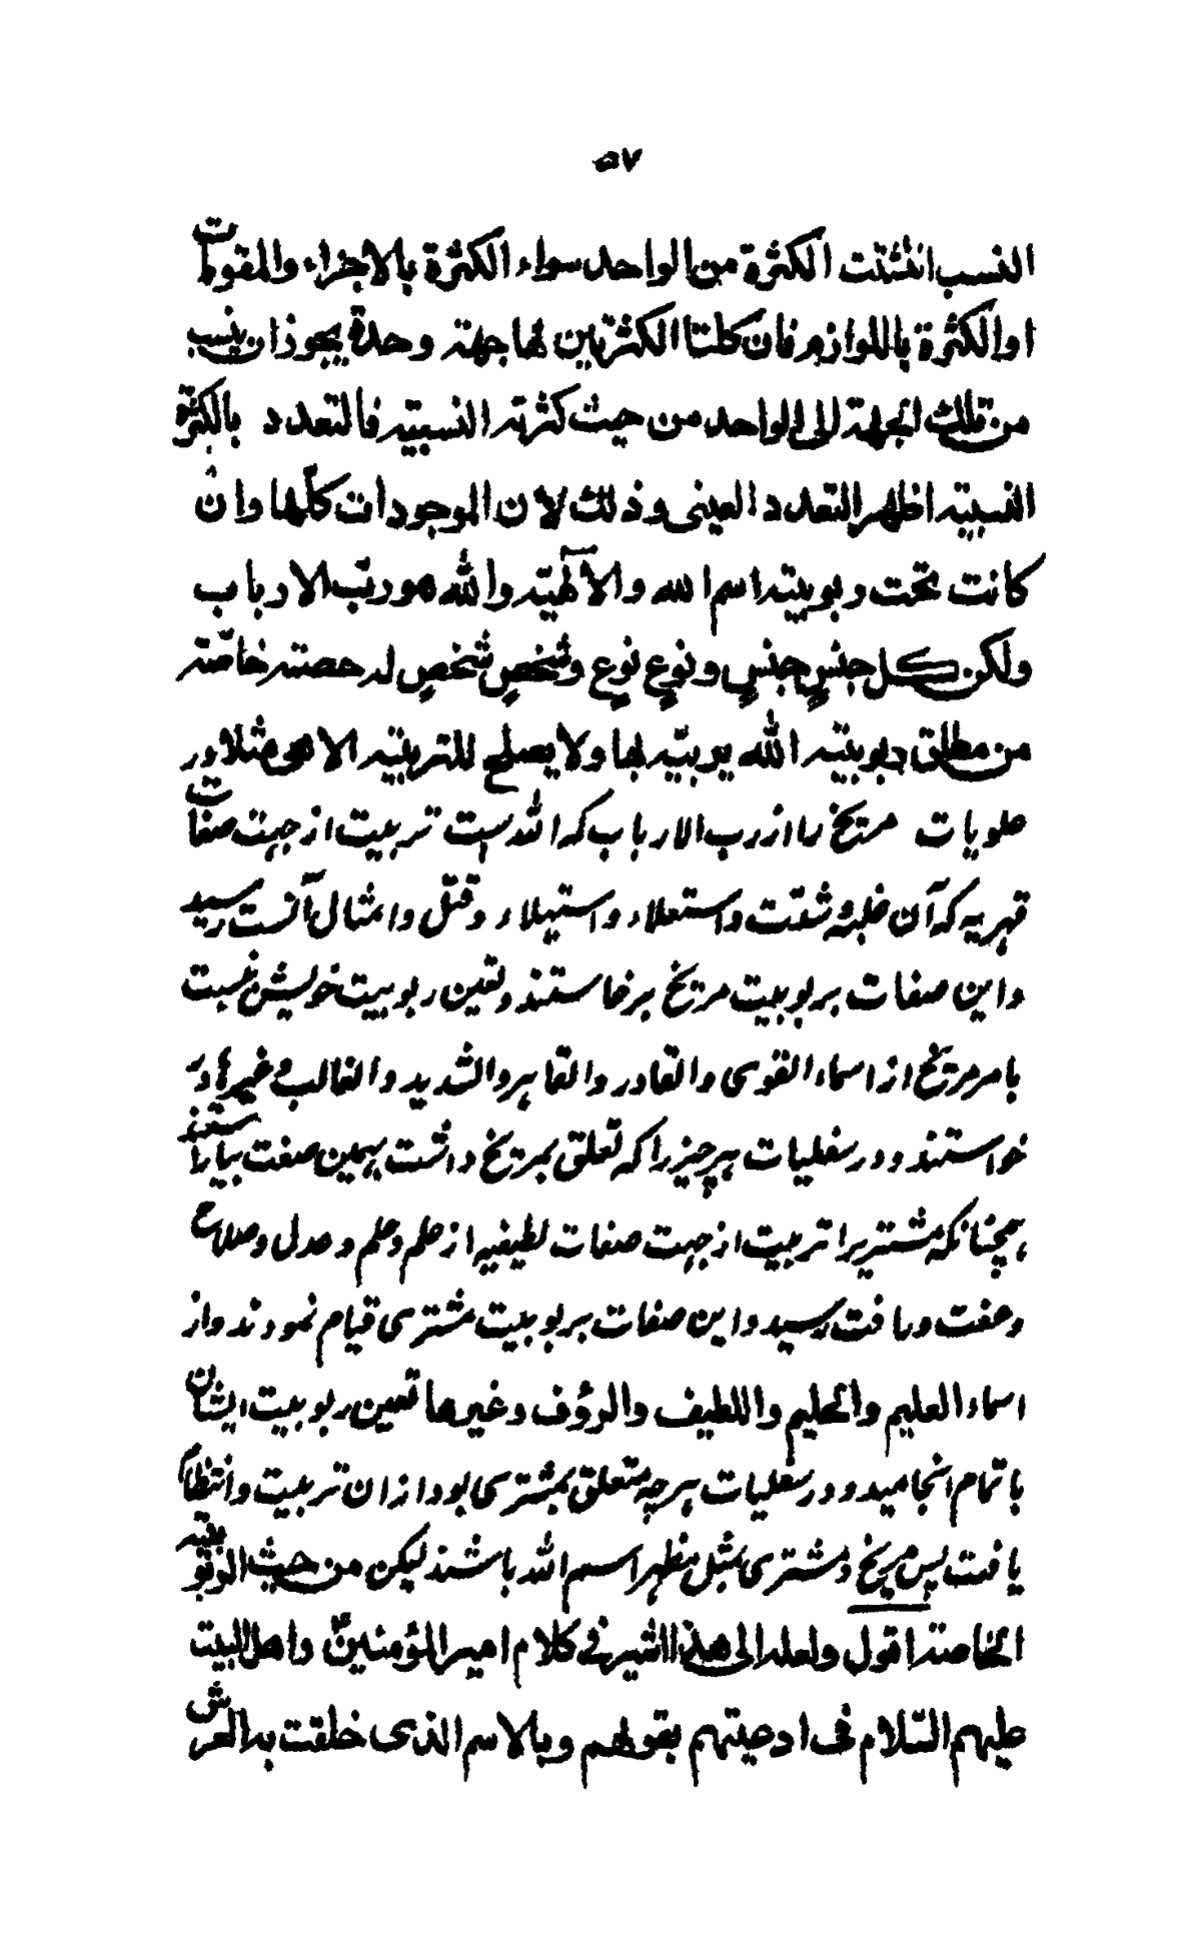 ٥٧
النسب انتشئت الكثرة من الواحد سواء الكثرة بالاجزاء والمقومات
او الكثرة باللوازم فان كلتا الكثرتين لها جهة وحدة يجوز ان ينسب
من تلك الجهة الى الواحد من حيث كثرته النسبيّة فالتعدد بالكثرة
النسبيّة اظهر التعدد العينى وذلك لان الموجودات كلّها وان
كانت تحت ربوبيته اسم الله والآلهيّة والله هو ربّ الارباب
ولكن كل جنسٍ جنسٍ ونوعٍ نوعٍ وشخصٍ شخصٍ له حصته خاصّة
من مطلق ربوبيّة الله يربيّه بها ولا يصلح للتربيّة الا هى مثلا در
علويات مريخ را از رب الارباب كه الله است تربيت از جهت صفات
قهريه كه آن غلبه وشدّت واستعلاء واستيلاء وقتل وامثال آنست رسيد
واين صفات بربوبيت مريخ برخاستند وتعين ربوبيت خويش نسبت
بامر مريخ از اسماء القوى والقادر والقاهر والشديد والغالب وغيرها در
خواستند ودر سفليات هرچيز را كه تعلق بمريخ داشت بهمين صفت بياراستند
همچنانكه مشتريرا تربيت از جهت صفات لطيفيه از علم وحلم وعدل وصلاح
وعفت ورافت رسيد واين صفات بربوبيت مشترى قيام نمودند واز
اسماء العليم والحليم واللطيف والرؤف وغيرها تعين ربوبيت ايشان
باتمام انجاميد ودر سفليات هرچه متعلق بمشترى بود ازان تربيت وانتظام
يافت پس مريخ ومشترى مثل مظهر اسم الله باشند ليكن من حيث الرقيقة
الخاصة اقول ولعله الى هذا اشير فى كلام امير المؤمنينؑ واهل البيت
عليهم السّلام فى ادعيتهم بقولهم وبالاسم الذى خلقت به العرش